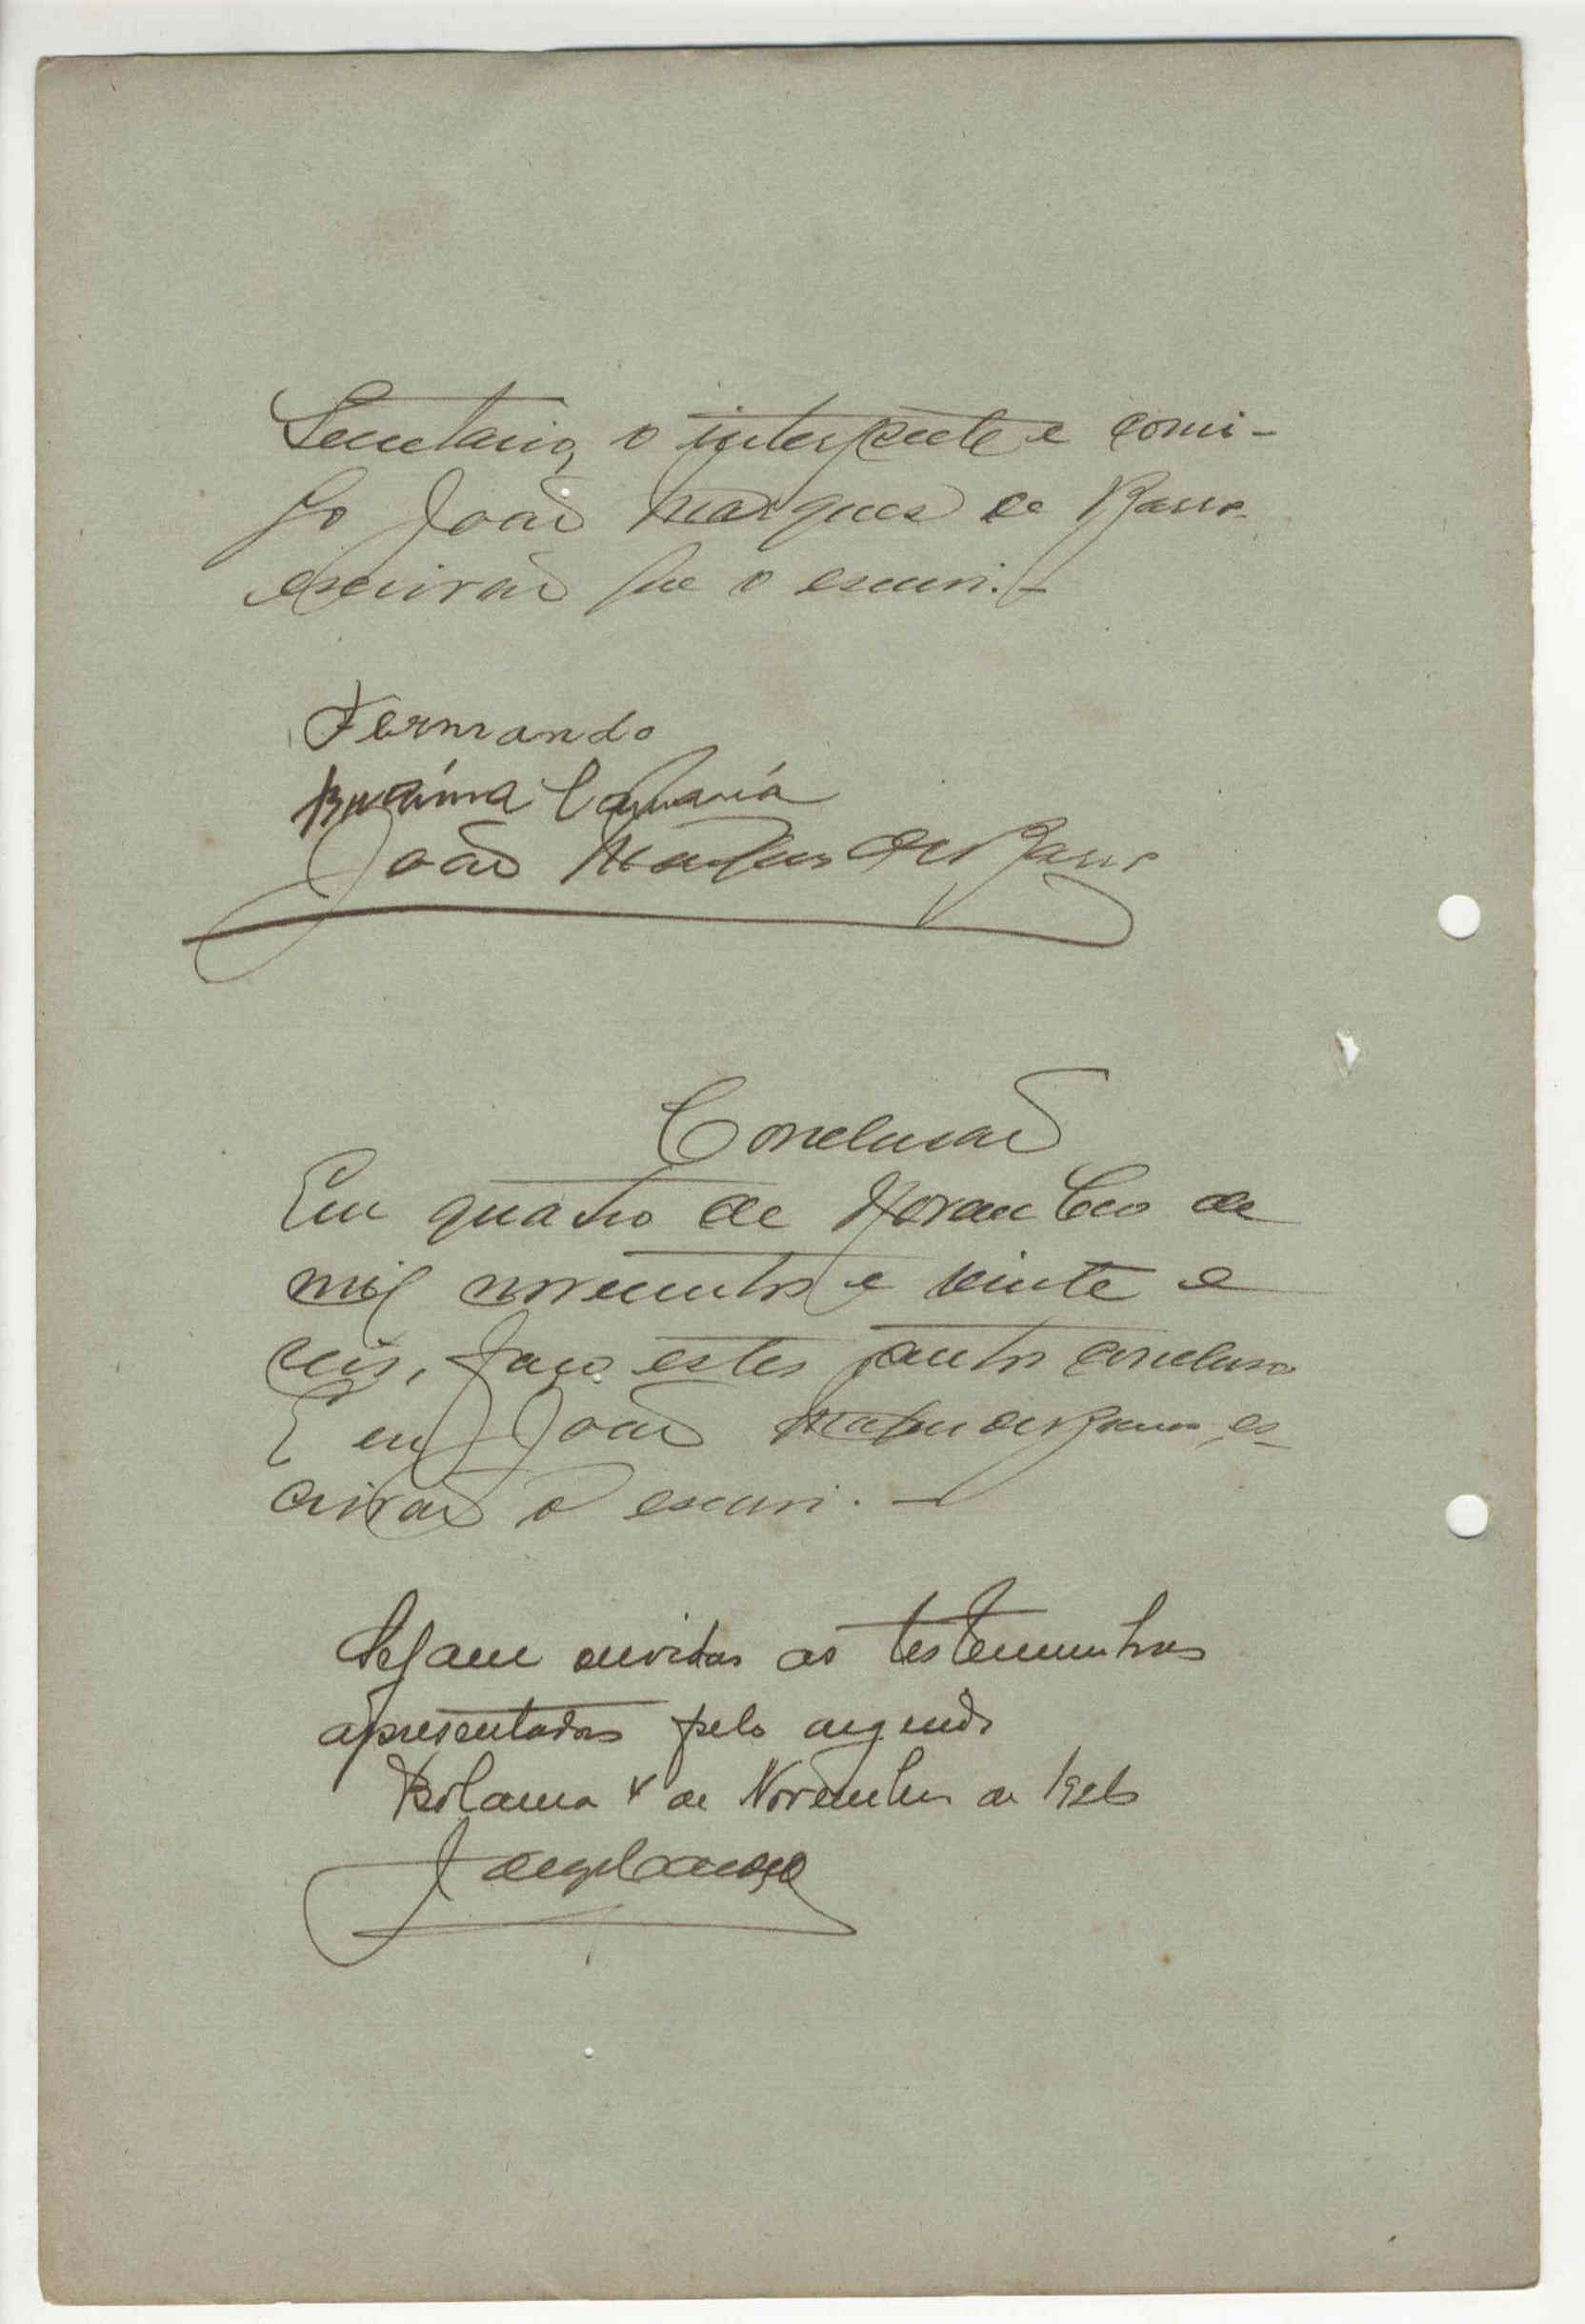 Secretario, o interprete e comi-
go João Marques de Barros
escrivão que o escrevi. -
Fernando
João Marques de Barros
Conclusão
Em quatro de Novembro de
mil novecentos e vinte e
seis, faço estes autos conclusos
E eu João Marques de Barros, es-
crivão o escrevi. -
Sejam ouvidas as testemunhas
apresentadas pelo arguido
Bolama 4 de Novembro de 1926